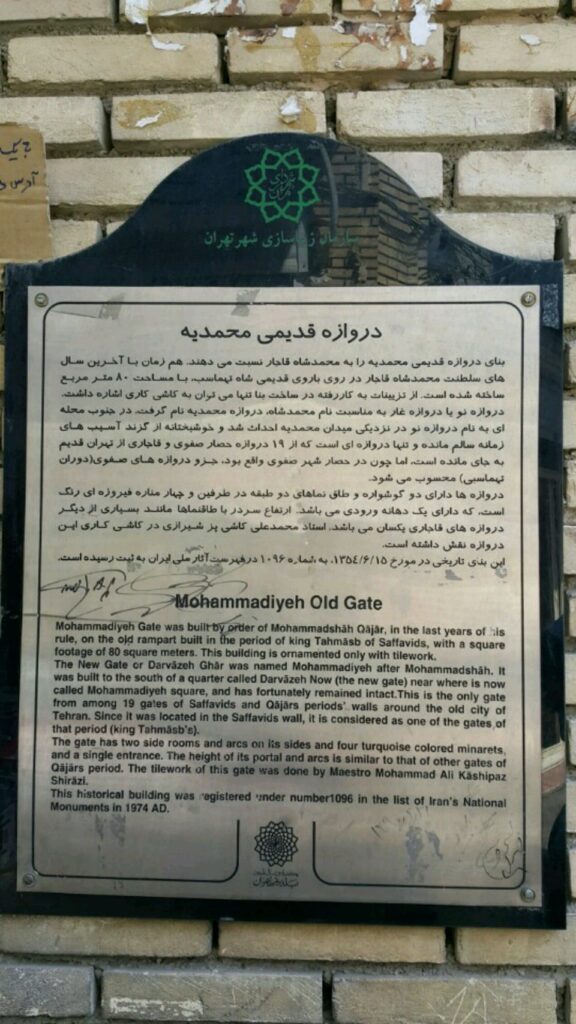 آدرس
سازمان زیباسازی شهر تهران
دروازه قدیمی محمدیه
بنای دروازه قدیمی محمدیه را به محمدشاه قاجار نسبت می دهند. هم زمان با آخرین سال
های سلطنت محمدشاه قاجار در روی باروی قدیمی شاه تهماسب، با مساحت ۸۰ متر مربع
ساخته شده است. از تزیینات به کاررفته در ساخت بنا تنها می توان به کاشی کاری اشاره داشت.
دروازه نو یا دروازه غار به مناسبت نام محمدشاه، دروازه محمدیه نام گرفت. در جنوب محله
ای به نام دروازه نو در نزدیکی میدان محمدیه احداث شد و خوشبختانه از گزند آسیب های
زمانه سالم مانده و تنها دروازه ای است که از ۱۹ دروازه حصار صفوی و قاجاری از تهران قدیم
به جای مانده است، اما چون در حصار شهر صفوی واقع بود، جزو دروازه های صفوی(دوران
تهماسبی) محسوب می شود.
دروازه ها دارای دو گوشواره و طاق نماهای دو طبقه در طرفین و چهار مناره فیروزه ای رنگ
است، که دارای یک دهانه ورودی می باشد. ارتفاع سردر با طاقنماها مانند بسیاری از دیگر
دروازه های قاجاری یکسان می باشد. استاد محمدعلی کاشی پز شیرازی در کاشی کاری این
دروازه نقش داشته است.
این بنای تاریخی در مورخ ۱۳۵۴/۶/۱۵، به شماره ۱۰۹۶ در فهرست آثار ملی ایران به ثبت رسیده است.
Mohammadiyeh Old Gate
Mohammadiyeh Gate was built by order of Mohammadshāh Qājār, in the last years of his
rule, on the old rampart built in the period of king Tahmāsb of Saffavids, with a square
footage of 80 square meters. This building is ornamented only with tilework.
The New Gate or Darvāzeh Ghār was named Mohammadiyeh after Mohammadshāh. It
was built to the south of a quarter called Darvāzeh Now (the new gate) near where is now
called Mohammadiyeh square, and has fortunately remained intact.This is the only gate
from among 19 gates of Saffavids and Qājārs periods' walls around the old city of
Tehran. Since it was located in the Saffavids wall, it is considered as one of the gates of
that period (king Tahmāsb's).
The gate has two side rooms and arcs on its sides and four turquoise colored minarets,
and a single entrance. The height of its portal and arcs is similar to that of other gates of
Qājārs period. The tilework of this gate was done by Maestro Mohammad Ali Kāshipaz
Shirāzi.
This historical building was registered under number1096 in the list of Iran's National
Monuments in 1974 AD.